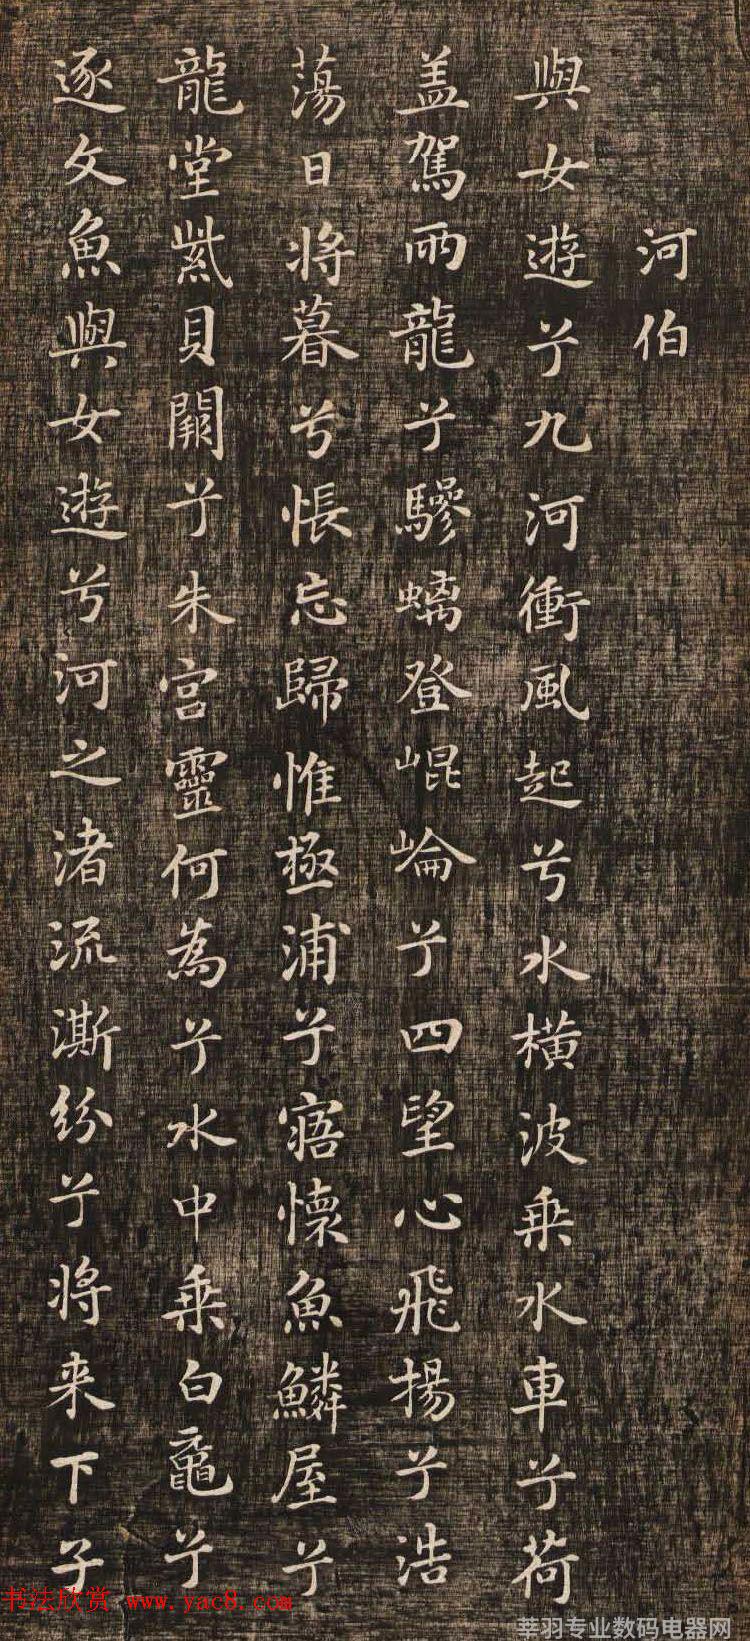 河伯
與女遊兮九河衝風起兮水橫波乗水車兮荷
盖駕兩龍兮驂螭登崐崘兮四望心飛揚兮浩
蕩日将暮兮悵忘歸惟極浦兮寤懷魚鱗屋兮
龍堂紫貝闕兮朱宫靈何為兮水中乗白黿兮
逐文魚與女遊兮河之渚流澌紛兮将来下子
书法欣赏 www.yac8.com
莘羽专业数码电器网